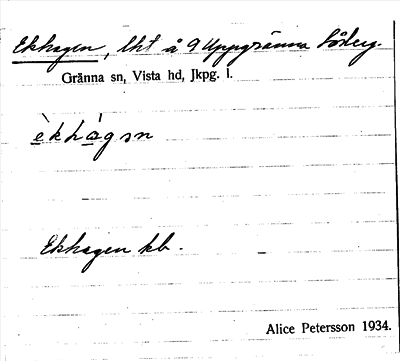 Ekhagen, lht å 9 Uppgränna Söderg.
Gränna sn, Vista hd, Jkpg. l.
èkhàgən
Ekhagen kb.
Alice Petersson 1934.